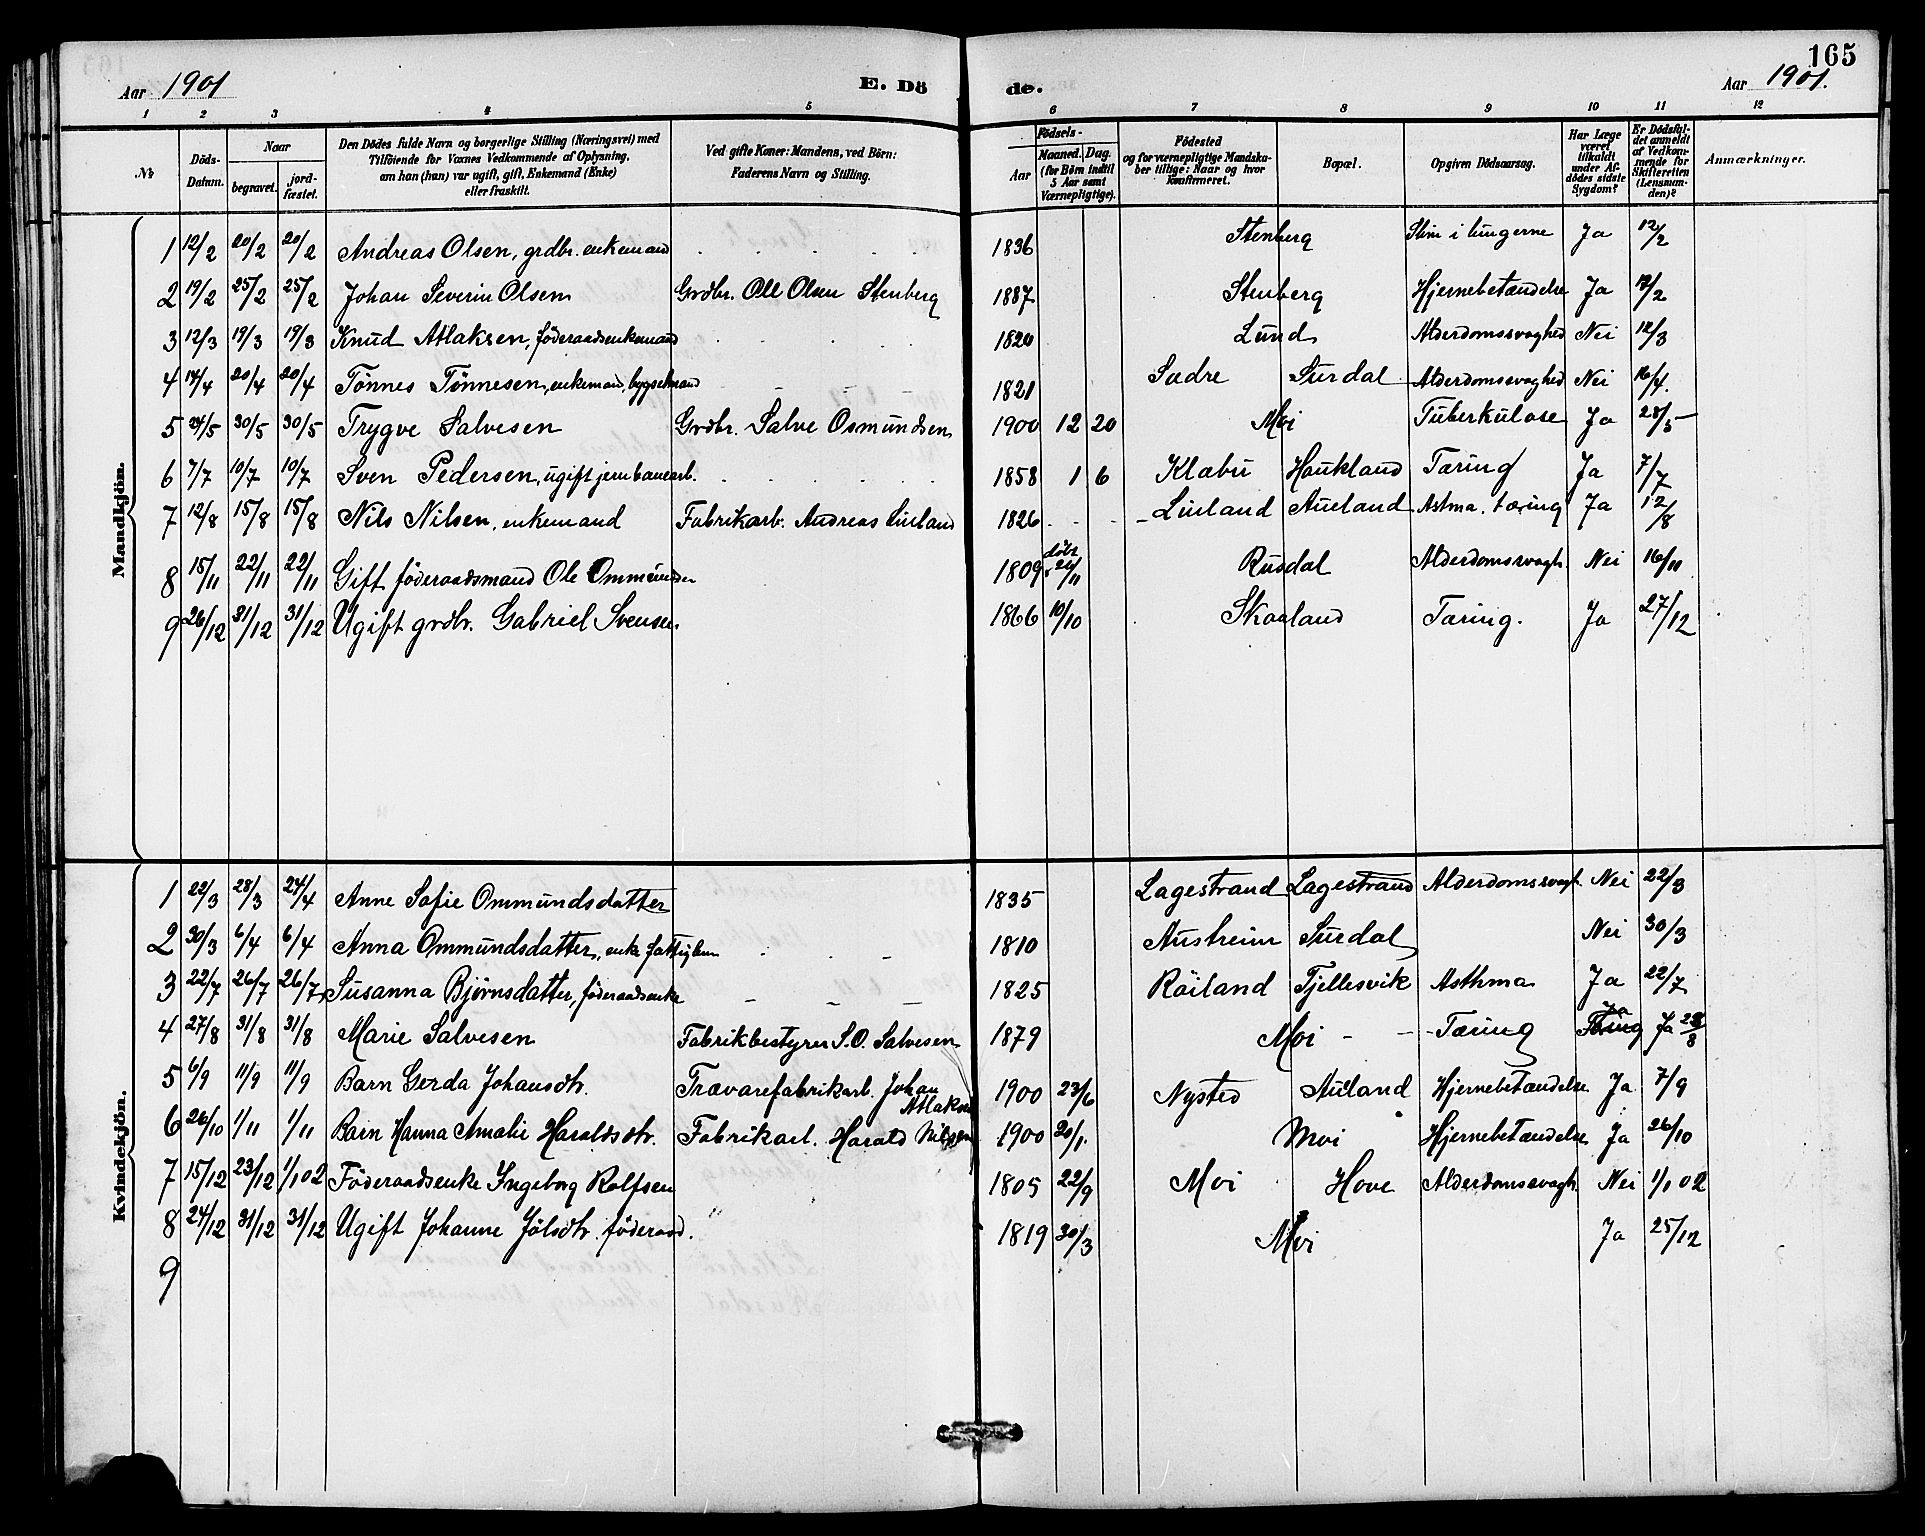 165
Aar 1901 E. Dö de. Aar 1901.
1 2 3 4 5 6 7 8 9 10 11 12
№ Döds-Datum. Naar begravet. jord-fæstet. Den Dödes fulde Navn og borgerlige Stilling (Næringsvei) med Tilföiende for Voxnes Vedkommende af Oplysning, om han (hun) var ugift, gift, Enkemand (Enke) eller fraskilt. Ved gifte Koner: Mandens, ved Börn: Faderens Navn og Stilling. Födsels- Aar Maaned. Dag. (for Börn indtil 5 Aar samt Værnepligtige). Födested og for værnepligtige Mandskaber tillige: Naar og hvor konfirmeret. Bopæl. Opgiven Dödsaarsag. Har Læge været tilkaldt under Afdödes sidste Sygdom? Er Dödsfaldet anmeldt af Vedkommende for Skifteretten (Lensmanden)? Anmærkninger.
Mandkjön.
1 12/2 20/2 20/2 Andreas Olsen, grdbr. enkemand 1836 Stenberg Slim i lungerne Ja 12/2
2 19/2 25/2 25/2 Johan Severin Olsen Grdbr. Ole Olsen Stenberg 1887 Stenberg Hjernebetændelse Ja 19/2
3 12/3 19/3 19/3 Knud Atlaksen, föderaadsenkemand 1820 Lund Alderdomssvaghed Nei 12/3
4 14/4 20/4 20/4 Tönnes Tönnesen, enkemand, bygselmand 1821 Sædre Surdal Alderdomssvaghed Nei 16/4.
5 24/5 30/5 30/5 Trygve Salvesen Grdbr. Salve Osmundsen 1900 12 20 Moi Tuberkulose Ja 28/5
6 7/7 10/7 10/7 Sven Pedersen, ugift jernbanearb. 1858 1 6 Klæbu Haukland Tæring Ja 7/7
7 12/8 15/8 15/8 Nils Nilsen, enkemand Fabrikarb. Andreas Liuland 1826 Liuland Aueland Astma. tæring Ja 12/8
8 15/11 22/11 22/11 Gift föderaadsmand Ole Ommundsen 1809 döbt 26/11 Rusdal Alderdomssvagh. Nei 16/11
9 26/12 31/12 31/12 Ugift grdbr. Gabriel Svensen. 1866 10/10 Skaaland Tæring. Ja 27/12
Kvindekjön.
1 22/3 28/3 24/4 Anne Sofie Ommundsdatter 1835 Lagestrand Lagestrand Alderdomssvagh. Nei 22/3
2 30/3 6/4 6/4 Anna Ommundsdatter, enke fattiglem 1810 Austreim Surdal Nei 30/3
3 22/7 26/7 26/7 Susanna Bjørnsdatter, föderaadsenke 1825 Röiland Tjellesvik Asthma Ja 22/7
4 27/8 31/8 31/8 Marie Salvesen Fabrikbestyrer S. O. Salvesen 1879 Moi Tæring Tæring Ja 28/8
5 6/9 11/9 11/9 Barn Gerda Johansdtr. Trævarefabrikarb. Johan Atlaksen 1900 23/6 Nysted Aueland Hjernebetændelse Ja 7/9
6 26/10 1/11 1/11 Barn Hanna Amalie Haraldsdtr. Fabrikarb. Harald Nilssen 1900 20/1. Moi Hjernebetændelse Ja 26/10
7 15/12 23/12 1/1 02 Föderaadsenke Ingeborg Rolfsen 1805 22/9 Moi Hove Alderdomssvagh. Nei 1/1 02
8 24/12 31/12 31/12 Ugift Johanne Jölsdtr. föderaad. 1819 30/3 Moi Ja 25/12
9